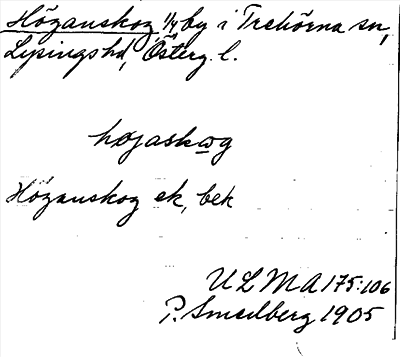 Höganskog 1/4 by i Trehörna sn,
Lysings hd, Österg. l.
hogaskog
Höganskog ek, bek
ULMA 175:106
P. Smedberg 1905